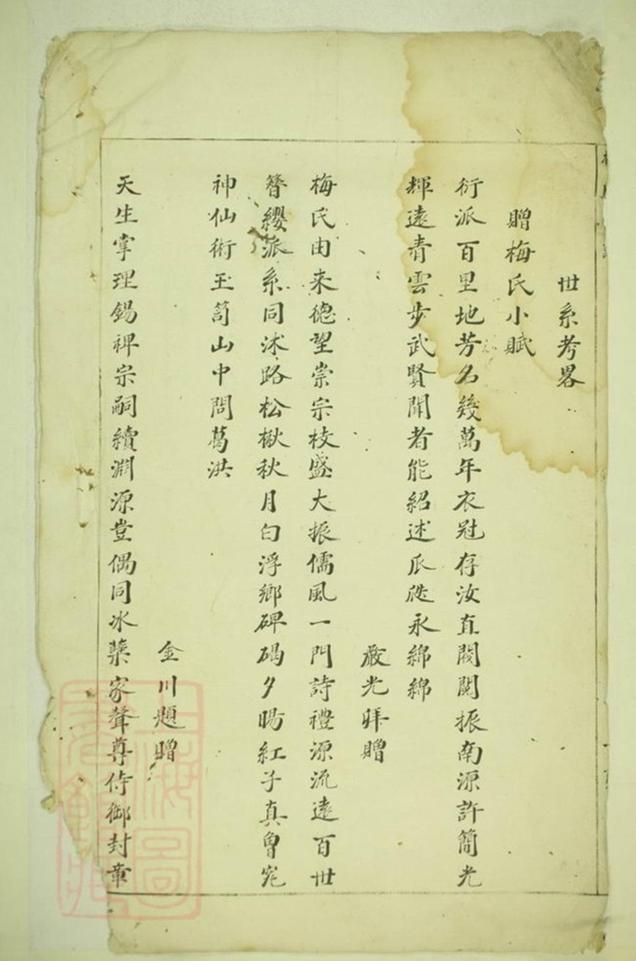 世系考畧
贈梅氏小賦
衍派百里地芳名幾萬年衣冠存汝直閥閱振南源許簡光
輝遠青雲步武賢聞者能紹述瓜瓞永綿綿
嚴光拜贈
梅氏由来德望崇宗枝盛大振儒風一門詩禮源流遠百世
簪纓派系同沭路松楸秋月白浮鄉碑碣夕陽紅子真曾究
神仙術玉笥山中問葛洪
金川題贈
天生掌理錫裨宗嗣續淵源豈偶同冰蘗家聲尊侍御封章